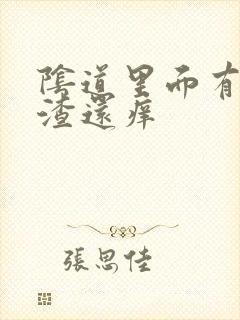 陰道里而有
渣還痒
張思佳